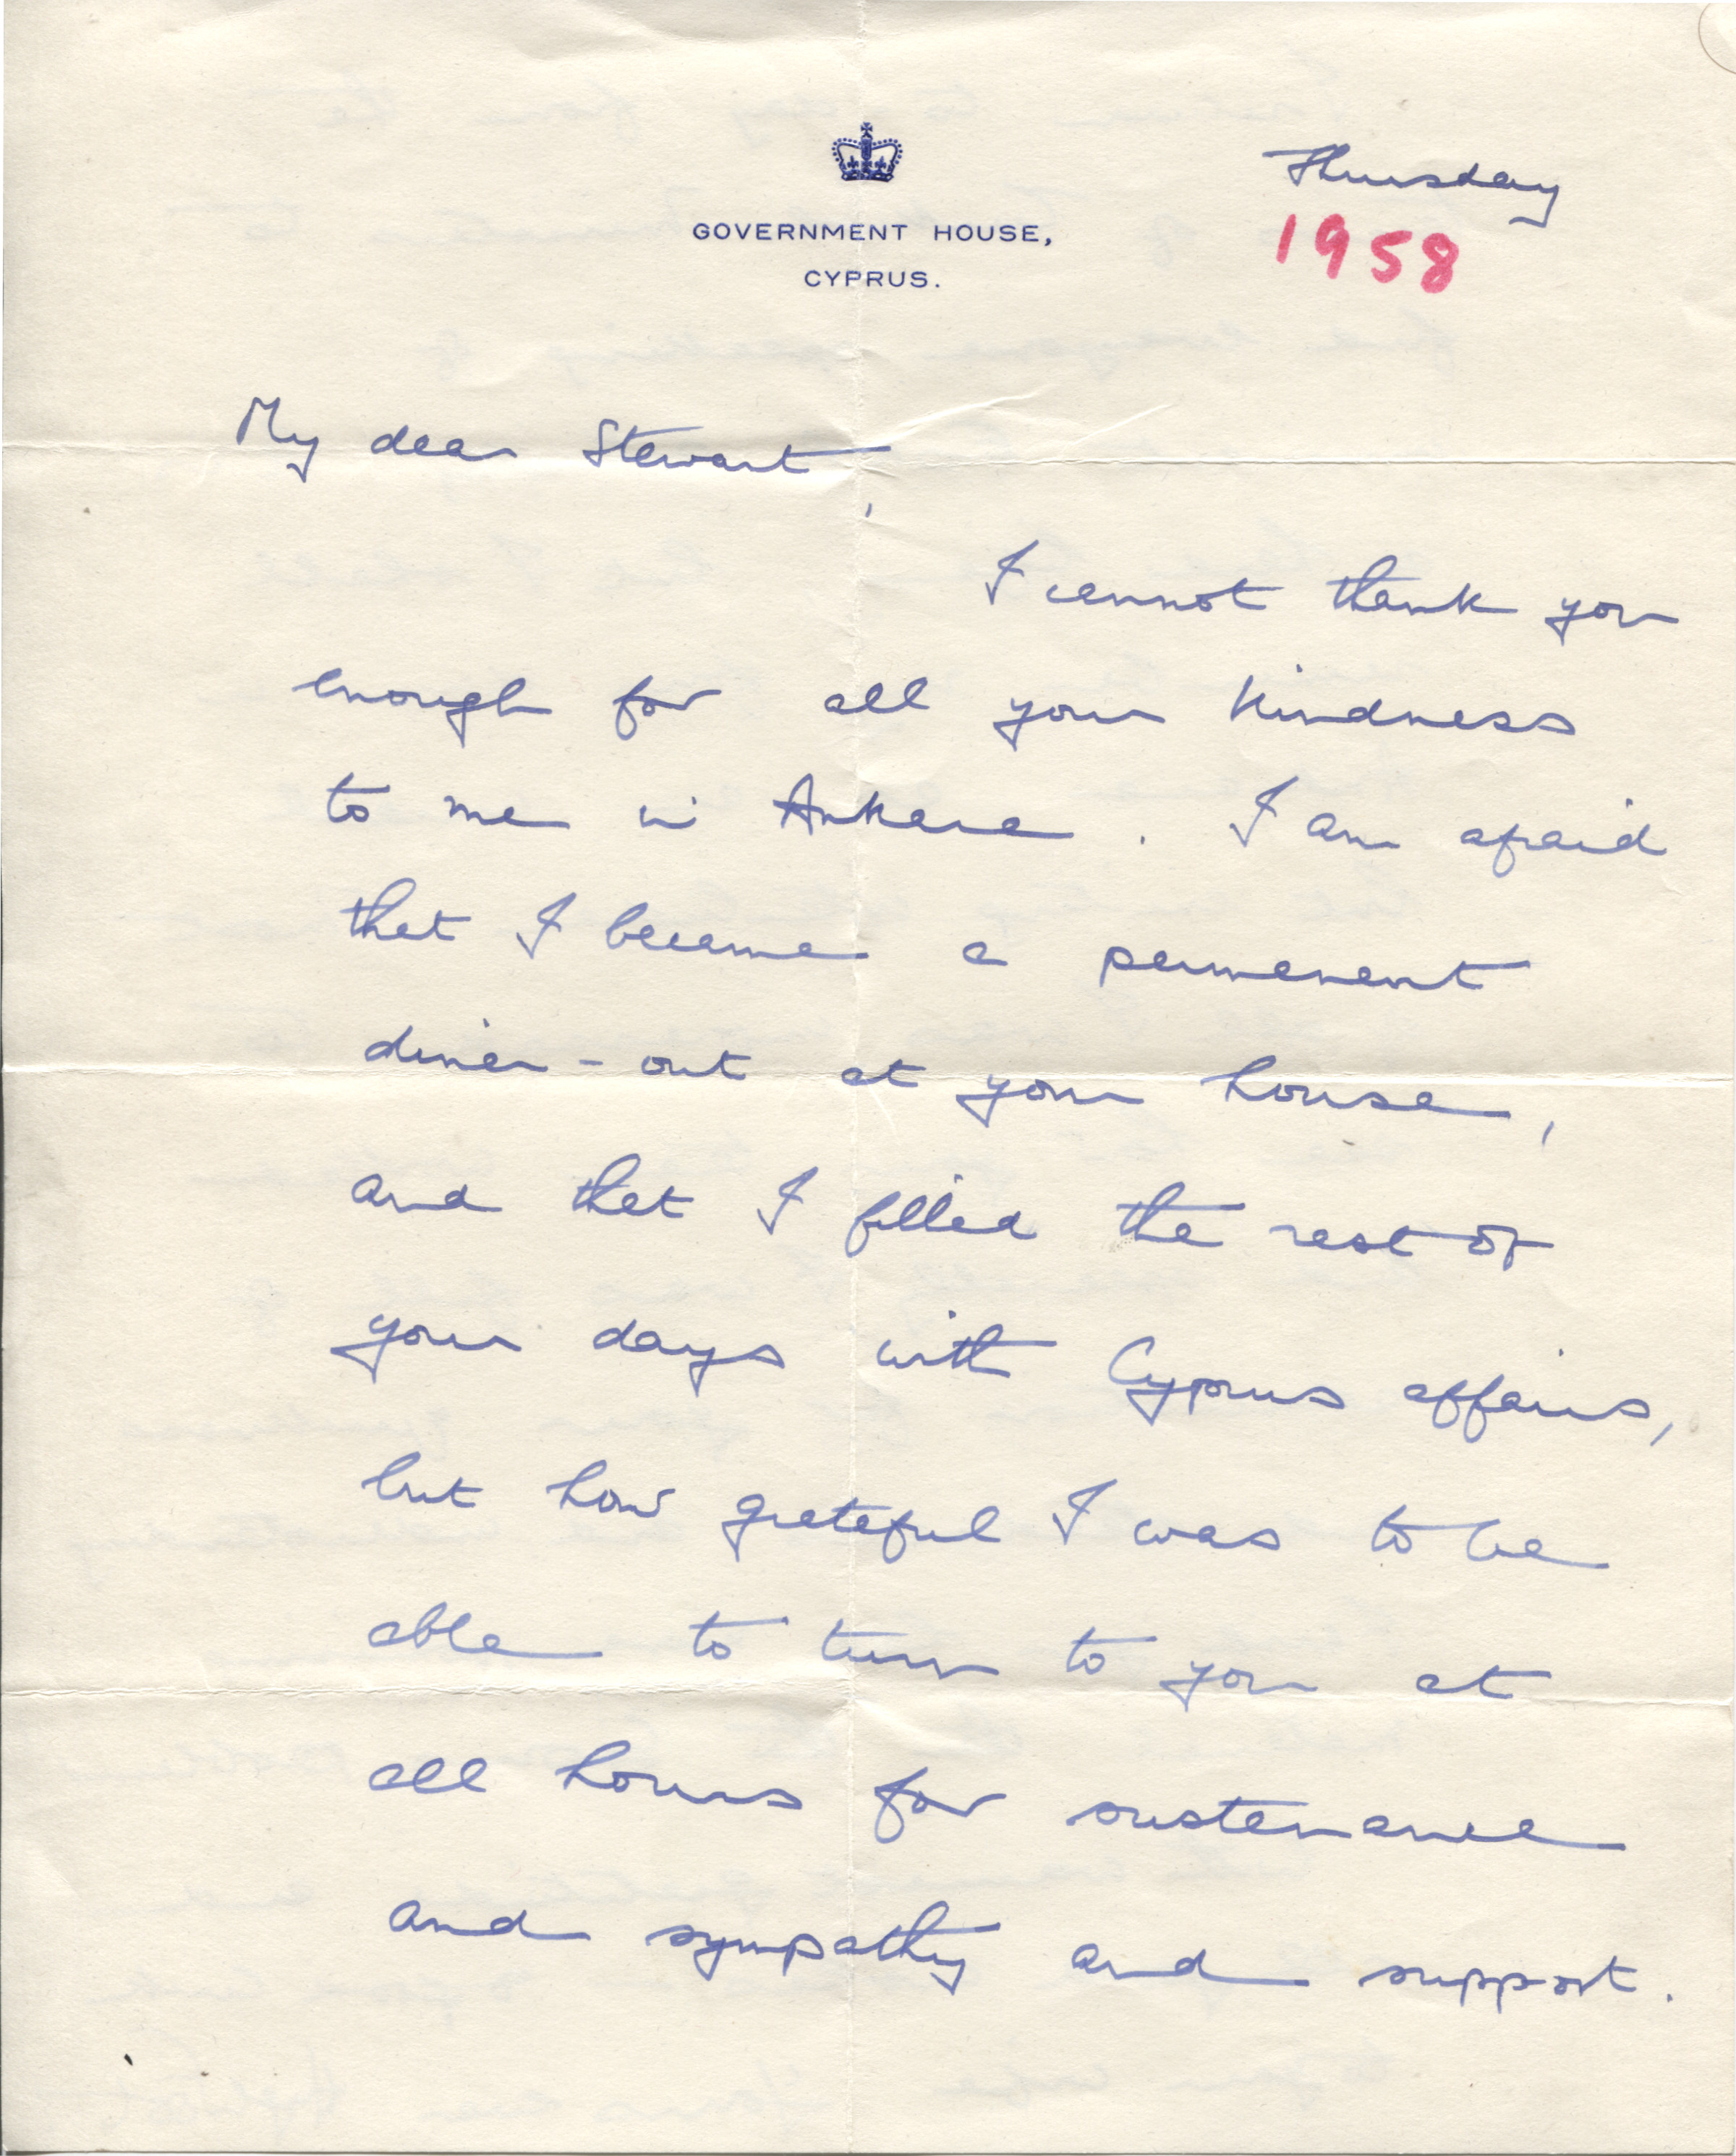 Thursday
1958
GOVERNMENT HOUSE,
CYPRUS.
My dear Stewart,
I cannot thank you
enough for all your kindness
to me in Ankara. I am afraid
that I became a permanent
diner-out at your house,
and that I filled the rest of
your days with Cyprus affairs,
but how grateful I was to be
able to turn to you at
all hours for sustenance
and sympathy and support.